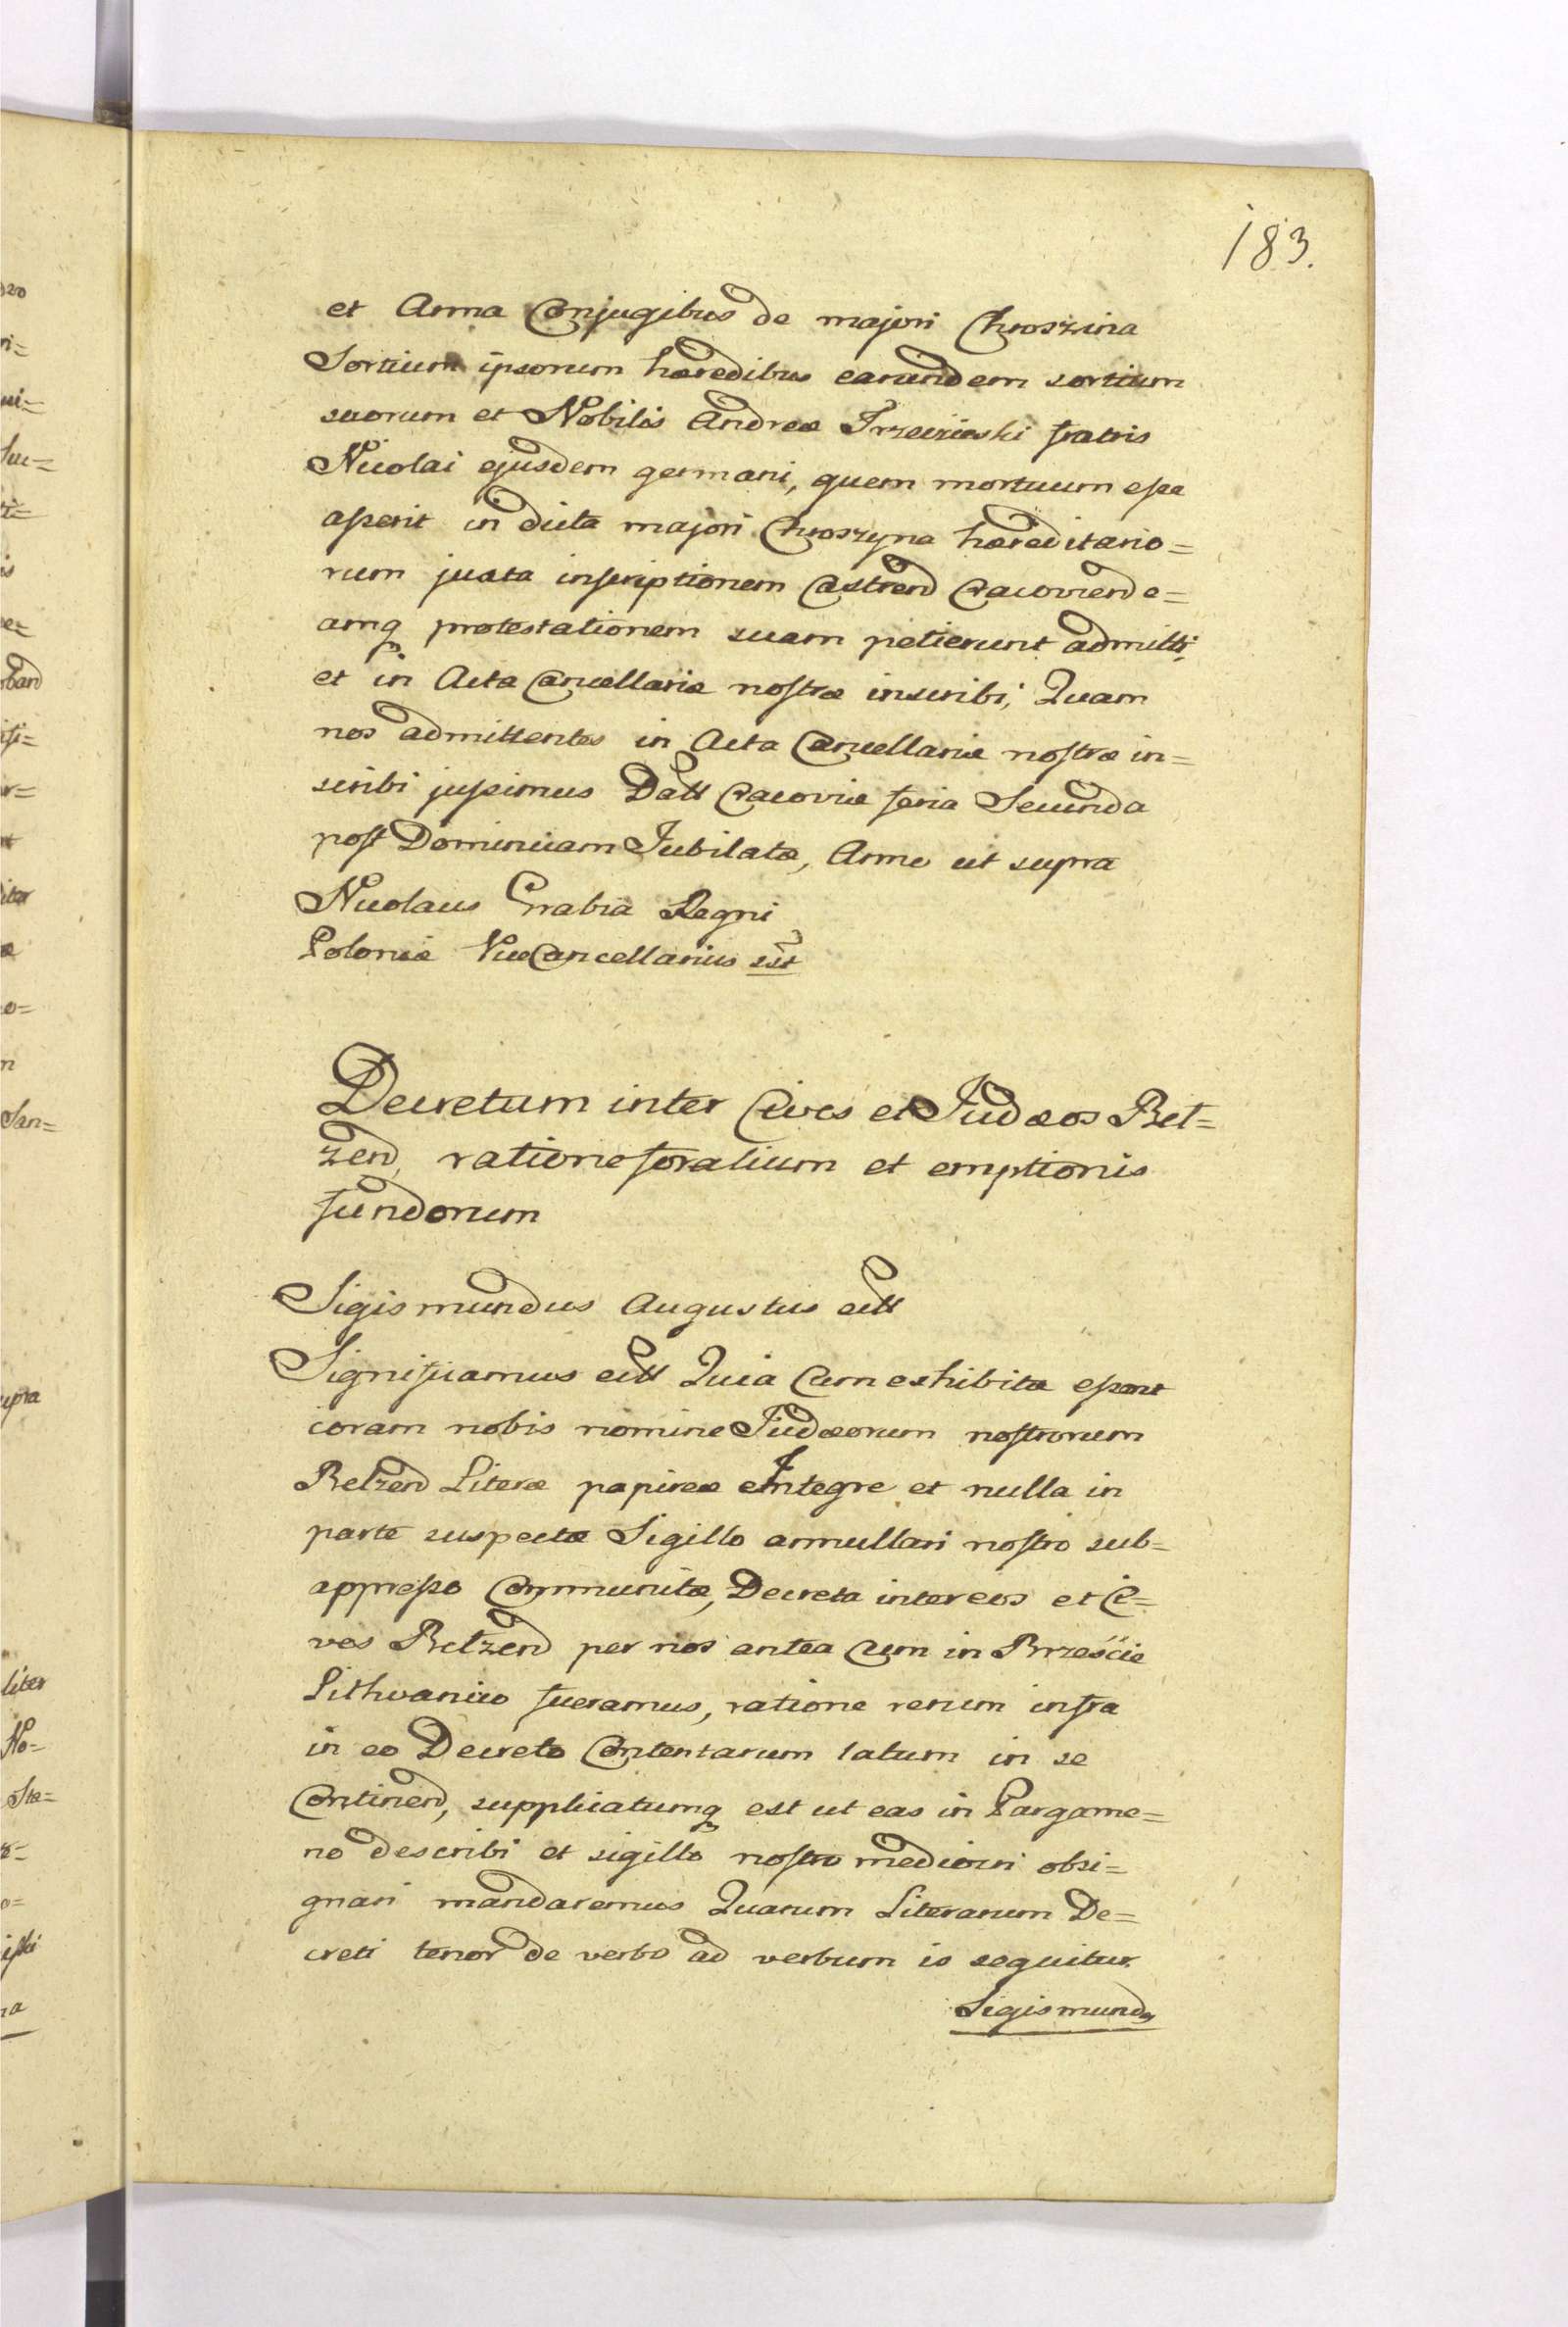 183.
et Anna Conjugibus de majori Chroszina
Sortium ipsorum hæredibus earundem sortium
suorum et Nobilis Andreæ Trzecieski fratris
Nicolai ejusdem germani, quem mortuum esse
asserit in dicta majori Chroszyna hæreditario=
rum juxta inscriptionem Castrend Cracoviend e=
amq protestationem suam petierunt admitti,
et in Acta Cancellariæ nostræ inscribi, Quam
nos admittentes in Acta Cancellariæ nostræ in=
scribi jussimus Datt Cracoviæ feria Secunda
post Dominicam Jubilatæ, Anno ut supra
Nicolaus Grabia Regni
Poloniæ ViceCancellarius sst
Decretum inter Cives et Judæos Bel=
zend, ratione foralium et emptionis
fundorum
Sigismundus Augustus ett
Significamus ett Quia Cum exhibitæ essent
coram nobis nomine Judæorum nostrorum
Belzend Literæ papireæ Integre et nulla in
parte suspectæ Sigillo annullari nostro sub=
appresso Communitæ, Decreta inter eos et Ci=
ves Belzend per nos antea Cum in Brzescie
Lithvanico fueramus, ratione rerum infra
in eo Decreto Contentarum latum in se
Continend, supplicatumq est ut eas in Pargame=
no describi et sigillo nostro mediocri obsi=
gnari mandaremus Quarum Literarum De=
creti tenor de verbo ad verbum is sequitur.
Sigismundq